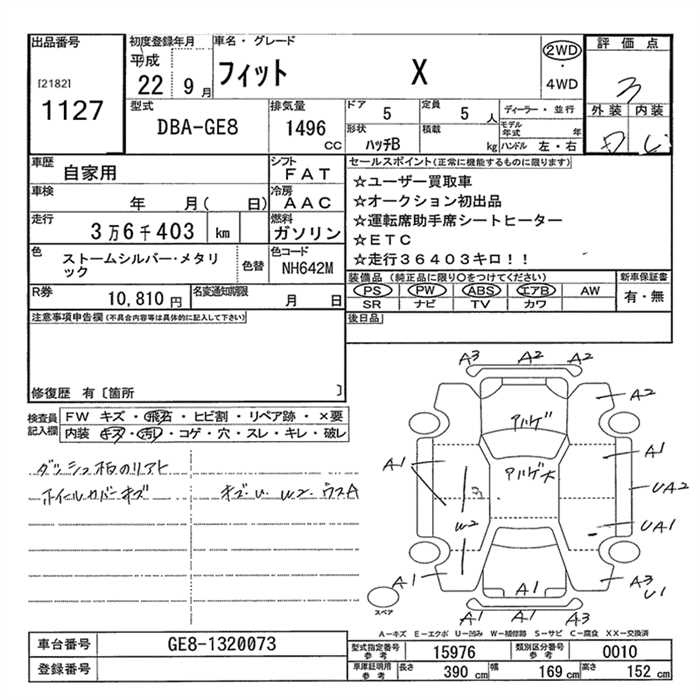 出品番号
[2182]
1127
初度登録年月
平成
22 9月
車名・グレード
フィット X
2WD
・
4WD
評価点
3
外装 内装
型式
DBA-GE8
排気量
1496
CC
ドア
5
定員
5 人
形状
ハッチB
積載
kg
ディーラー・並行
モデル年式 年
ハンドル 左・右
車歴
自家用
シフト
FAT
車検
年 月( 日)
冷房
AAC
走行
3万6千403 km
燃料
ガソリン
色
ストームシルバー・メタリ
ック
色替
色コード
NH642M
R券
10,810円
名変通知期限
月 日
セールスポイント(正常に機能するものに限ります)
☆ユーザー買取車
☆オークション初出品
☆運転席助手席シートヒーター
☆ETC
☆走行36403キロ!!
装備品(純正品に限り○をつけてください)
PS PW ABS エアB AW
SR ナビ TV カワ
新車保証書
有・無
注意事項申告欄(不具合内容等は具体的に記入して下さい)
後日品
修復歴 有〔箇所 〕
検査員
記入欄
FW キズ・飛石・ヒビ割・リペア跡・×要
内装 キズ・汚レ・コゲ・穴・スレ・キレ・破レ
ホイルカバーキズ
キズ・U W2 ウスA
A3 A2 A2
A2
アバゲ
A1
アバゲ大
A1
UA2
W2
UA1
A1
A3
U1
A1
A1 A1 A3
スペア
A－キズ E－エクボ U－凹み W－補修跡 S－サビ C－腐食 XX－交換済
車台番号
GE8-1320073
登録番号
型式指定番号
参考
15976
類別区分番号
参考
0010
車庫証明用
参考
長さ 390 cm 幅 169 cm 高さ 152 cm